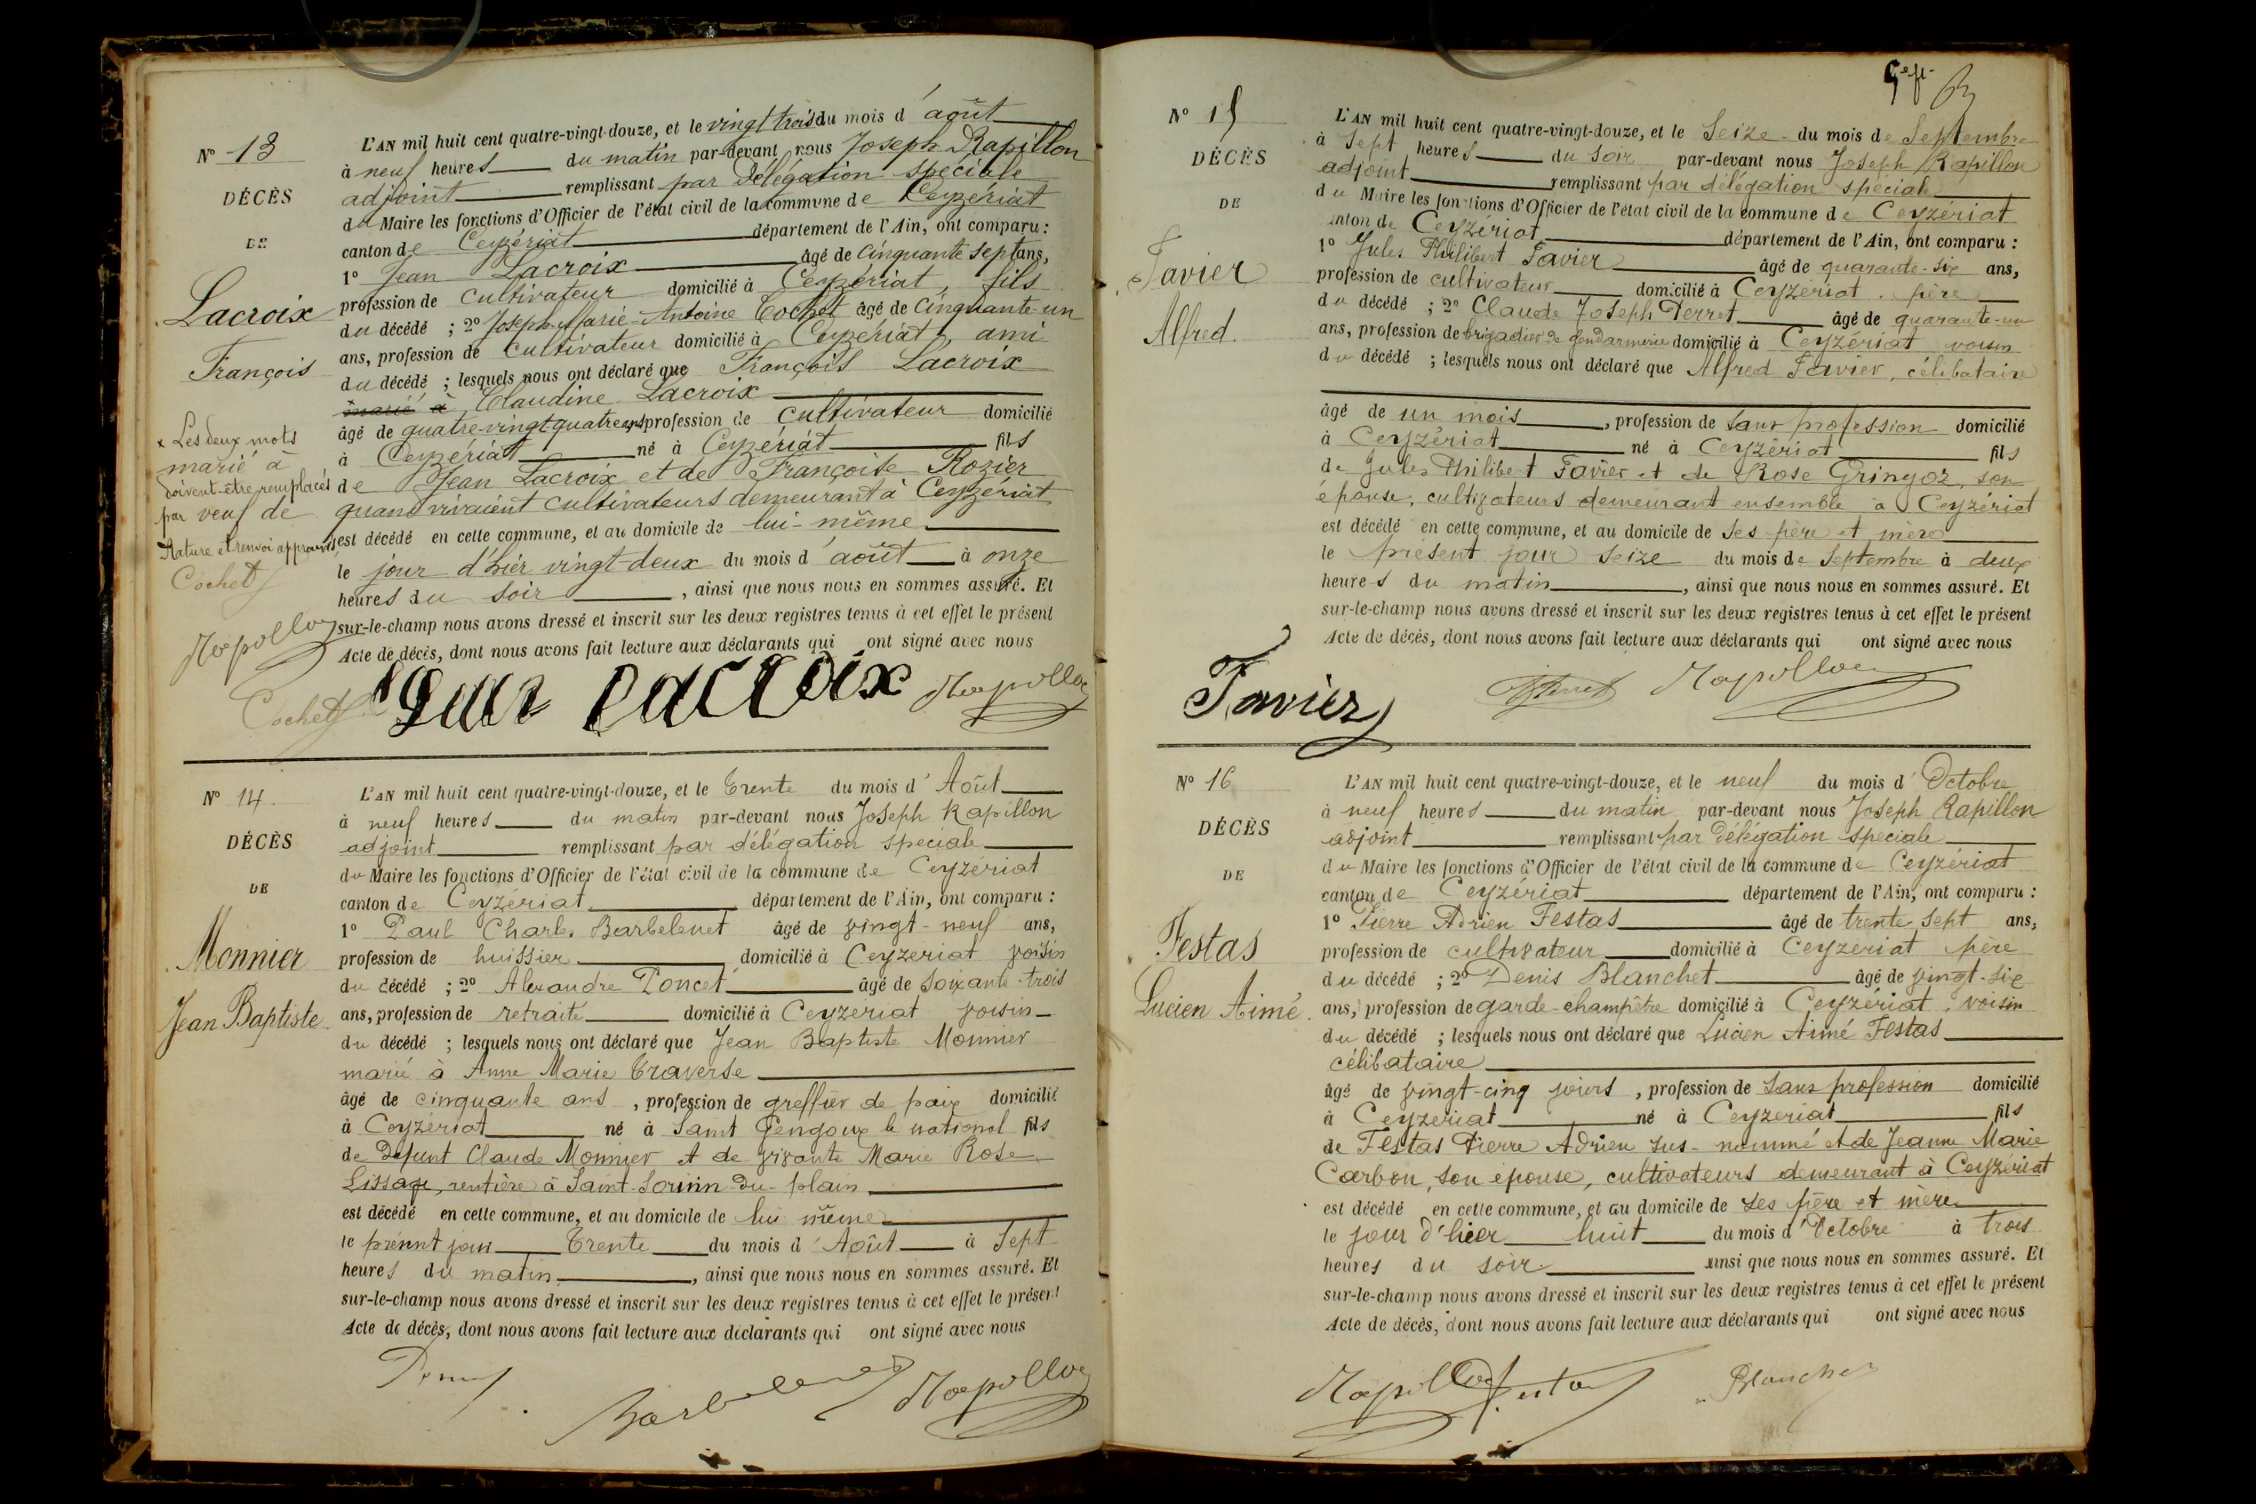 Nº 13
DÉCÈS
DE
Lacroix
François
x Les deux mots
marié à
doivent-être remplacés
par veuf de
Rature et renvoi approuvés
Cochet
L'AN mil huit cent quatre-vingt-douze, et le vingt trois du mois d'août
à neuf heures du matin par-devant nous Joseph Rapillon
adjoint remplissant par délégation spéciale
du Maire les fonctions d'Officier de l'état civil de la commune de Ceyzériat
canton de Ceyzériat département de l'Ain, ont comparu :
1º Jean Lacroix âgé de cinquante sept ans,
profession de cultivateur domicilié à Ceyzériat, fils
du décédé ; 2º Joseph-Marie-Antoine Cochet âgé de cinquante-un
ans, profession de cultivateur domicilié à Ceyzériat, ami
du décédé ; lesquels nous ont déclaré que François Lacroix
marié à Claudine Lacroix
âgé de quatre-vingt quatre ans profession de cultivateur domicilié
à Ceyzériat né à Ceyzériat fils
de Jean Lacroix et de Françoise Rozier
quand vivaient cultivateurs demeurant à Ceyzériat
est décédé en cette commune, et au domicile de lui-même
le jour d'hier vingt-deux du mois d'août à onze
heures du soir, ainsi que nous nous en sommes assuré. Et
sur-le-champ nous avons dressé et inscrit sur les deux registres tenus à cet effet le présent
Acte de décès, dont nous avons fait lecture aux déclarants qui ont signé avec nous
Cochet Jean Lacroix
Nº 14
DÉCÈS
DE
Monnier
Jean Baptiste
L'AN mil huit cent quatre-vingt-douze, et le trente du mois d'Août
à neuf heures du matin par-devant nous Joseph Rapillon
adjoint remplissant par délégation spéciale
du Maire les fonctions d'Officier de l'état civil de la commune de Ceyzériat
canton de Ceyzériat département de l'Ain, ont comparu :
1º Paul Charles Barbelenet âgé de vingt-neuf ans,
profession de huissier domicilié à Ceyzeriat voisin
du décédé ; 2º Alexandre Poncet âgé de soixante-trois
ans, profession de retraité domicilié à Ceyzeriat voisin
du décédé ; lesquels nous ont déclaré que Jean Baptiste Monnier
marié à Anne Marie Traverse
âgé de cinquante ans, profession de greffier de paix domicilié
à Ceyzériat né à Saint Gengoux le national fils
de Défunt Claude Monnier et de vivante Marie Rose
Lissage, rentière à Saint-Sorinin-du-plain
est décédé en cette commune, et au domicile de lui même
le présent jour trente du mois d'Août à Sept
heures du matin, ainsi que nous nous en sommes assuré. Et
sur-le-champ nous avons dressé et inscrit sur les deux registres tenus à cet effet le présent
Acte de décès, dont nous avons fait lecture aux déclarants qui ont signé avec nous
Nº 15
DÉCÈS
DE
Favier
Alfred.
L'AN mil huit cent quatre-vingt-douze, et le Seize du mois de Septembre
à Sept heures du soir par-devant nous Joseph Rapillon
adjoint remplissant par délégation spéciale
du Maire les fonctions d'Officier de l'état civil de la commune de Ceyzériat
canton de Ceyzériat département de l'Ain, ont comparu :
1º Jules Philibert Favier âgé de quarante-six ans,
profession de cultivateur domicilié à Ceyzériat, père
du décédé ; 2º Claude Joseph Perret âgé de quarante-un
ans, profession de brigadier de gendarmerie domicilié à Ceyzériat voisin
du décédé ; lesquels nous ont déclaré que Alfred Favier, célibataire
âgé de un mois, profession de sans profession domicilié
à Ceyzériat né à Ceyzériat fils
de Jules Philibert Favier et de Rose Gringoz, son
épouse, cultivateurs demeurant ensemble à Ceyzériat
est décédé en cette commune, et au domicile de ses père et mère
le présent jour seize du mois de Septembre à deux
heures du matin, ainsi que nous nous en sommes assuré. Et
sur-le-champ nous avons dressé et inscrit sur les deux registres tenus à cet effet le présent
Acte de décès, dont nous avons fait lecture aux déclarants qui ont signé avec nous
Favier
Nº 16
DÉCÈS
DE
Festas
Lucien Aimé.
L'AN mil huit cent quatre-vingt-douze, et le neuf du mois d'Octobre
à neuf heures du matin par-devant nous Joseph Rapillon
adjoint remplissant par délégation spéciale
du Maire les fonctions d'Officier de l'état civil de la commune de Ceyzériat
canton de Ceyzériat département de l'Ain, ont comparu :
1º Pierre Adrien Festas âgé de trente sept ans,
profession de cultivateur domicilié à Ceyzeriat père
du décédé ; 2º Denis Blanchet âgé de vingt-six
ans, profession de garde-champêtre domicilié à Ceyzériat, voisin
du décédé ; lesquels nous ont déclaré que Lucien Aimé Festas
célibataire
âgé de vingt-cinq jours, profession de sans profession domicilié
à Ceyzeriat né à Ceyzeriat fils
de Festas Pierre Adrien sus-nommé et de Jeanne Marie
Carbon, son épouse, cultivateurs demeurant à Ceyzériat
est décédé en cette commune, et au domicile de ses père et mère
le jour d'hier huit du mois d'Octobre à trois
heures du soir ainsi que nous nous en sommes assuré. Et
sur-le-champ nous avons dressé et inscrit sur les deux registres tenus à cet effet le présent
Acte de décès, dont nous avons fait lecture aux déclarants qui ont signé avec nous
Blanchet